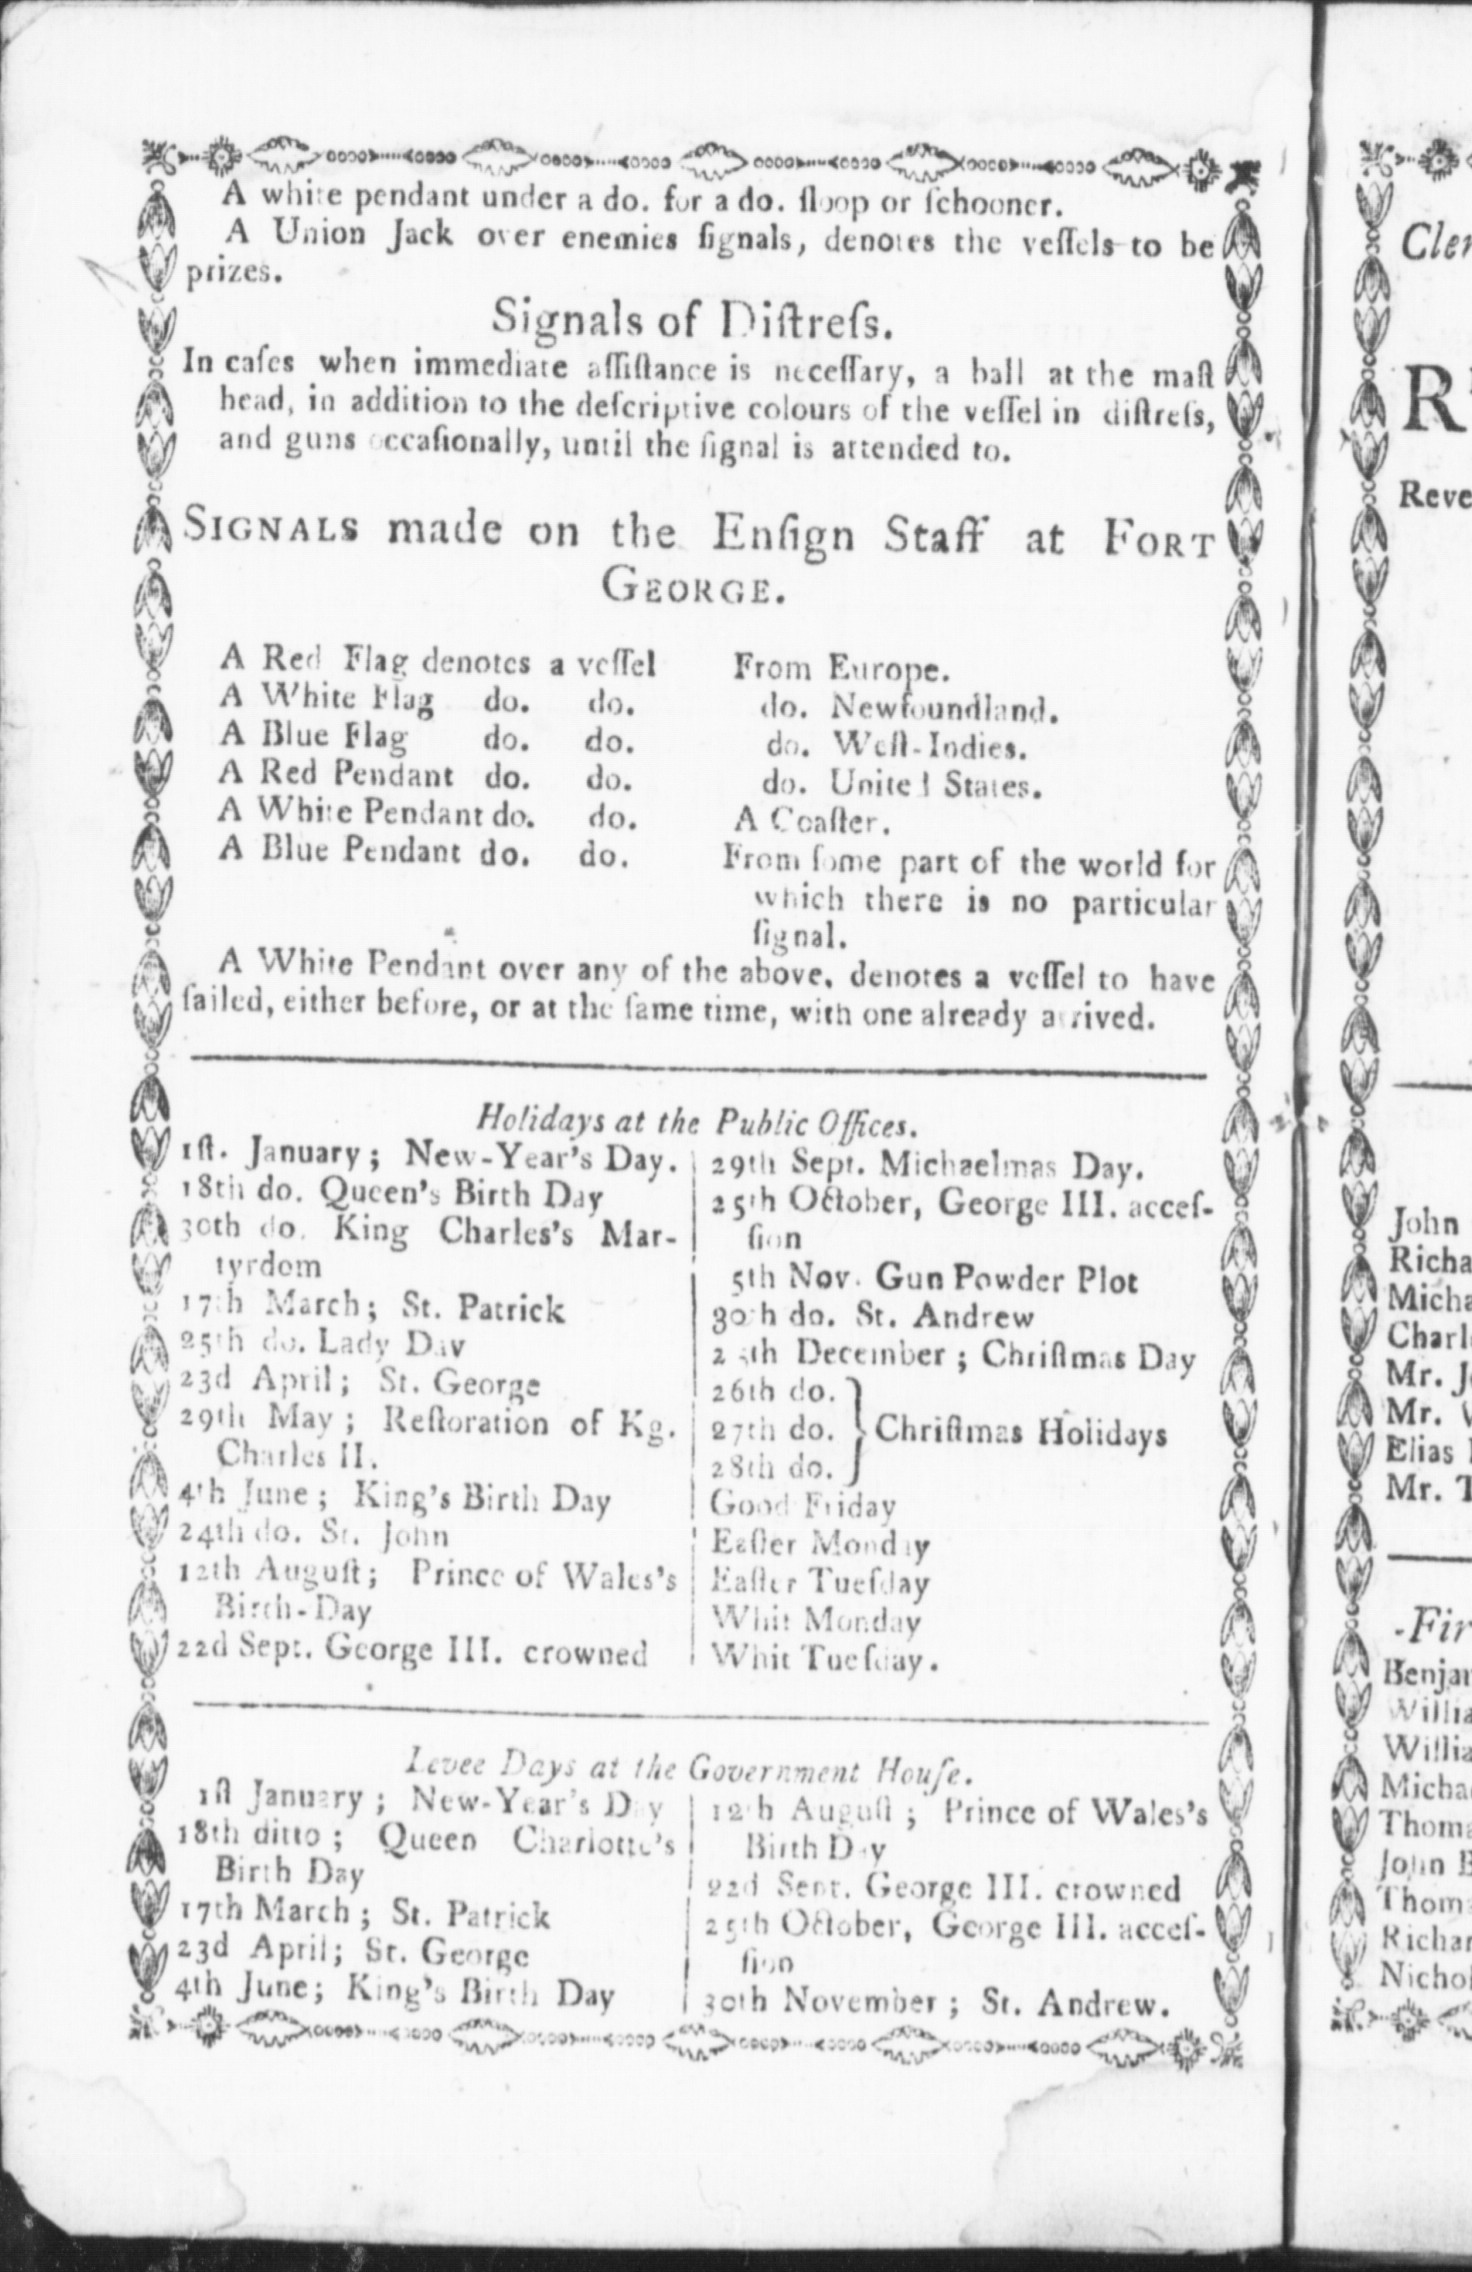 A white pendant under a do. for a do. ſloop or ſchooner.
A Union Jack over enemies ſignals, denotes the veſſels to be
prizes.
Signals of Diſtreſs.
In caſes when immediate aſſiſtance is neceſſary, a ball at the maſt
head, in addition to the deſcriptive colours of the veſſel in diſtreſs,
and guns occaſionally, until the ſignal is attended to.
SIGNALS made on the Enſign Staff at FORT
GEORGE.
A Red Flag denotes a veſſel From Europe.
A White Flag do. do. do. Newfoundland.
A Blue Flag do. do. do. Weſt-Indies.
A Red Pendant do. do. do. United States.
A White Pendant do. do. A Coaſter.
A Blue Pendant do. do. From ſome part of the world for
which there is no particular
ſignal.
A White Pendant over any of the above, denotes a veſſel to have
ſailed, either before, or at the ſame time, with one already arrived.
Holidays at the Public Offices.
1ſt. January; New-Year's Day.
18th do. Queen's Birth Day
30th do. King Charles's Mar-
tyrdom
17th March; St. Patrick
25th do. Lady Day
23d April; St. George
29th May; Reſtoration of Kg.
Charles II.
4th June; King's Birth Day
24th do. St. John
12th Auguſt; Prince of Wales's
Birth-Day
22d Sept. George III. crowned
29th Sept. Michaelmas Day.
25th October, George III. acceſ-
ſion
5th Nov. Gun Powder Plot
30th do. St. Andrew
25th December; Chriſtmas Day
26th do.
27th do. Chriſtmas Holidays
28th do.
Good Friday
Eaſter Monday
Eaſter Tueſday
Whit Monday
Whit Tueſday.
Levee Days at the Government Houſe.
1ſt January; New-Year's Day
18th ditto; Queen Charlotte's
Birth Day
17th March; St. Patrick
23d April; St. George
4th June; King's Birth Day
12th Auguſt; Prince of Wales's
Birth Day
22d Sept. George III. crowned
25th October, George III. acceſ-
ſion
30th November; St. Andrew.
Reve
John
Richa
Micha
Charl
Mr.
Mr.
Elias
Mr. T
-Fir
Benjam
Willia
Willia
Micha
Thoma
John B
Thoma
Richar
Nichol